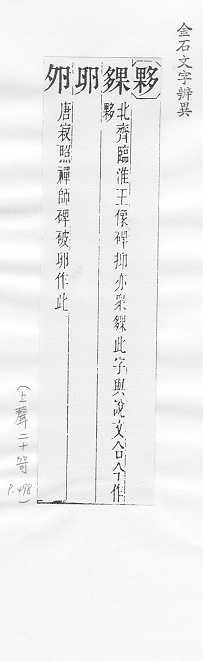 金石文字辨異
夥
㚌
北齊臨淮王像碑抑亦眾㚌此字與說文合今作
夥
卵
夘
唐寂照禪師碑破卵作此
(上聲二十哿 P.498)